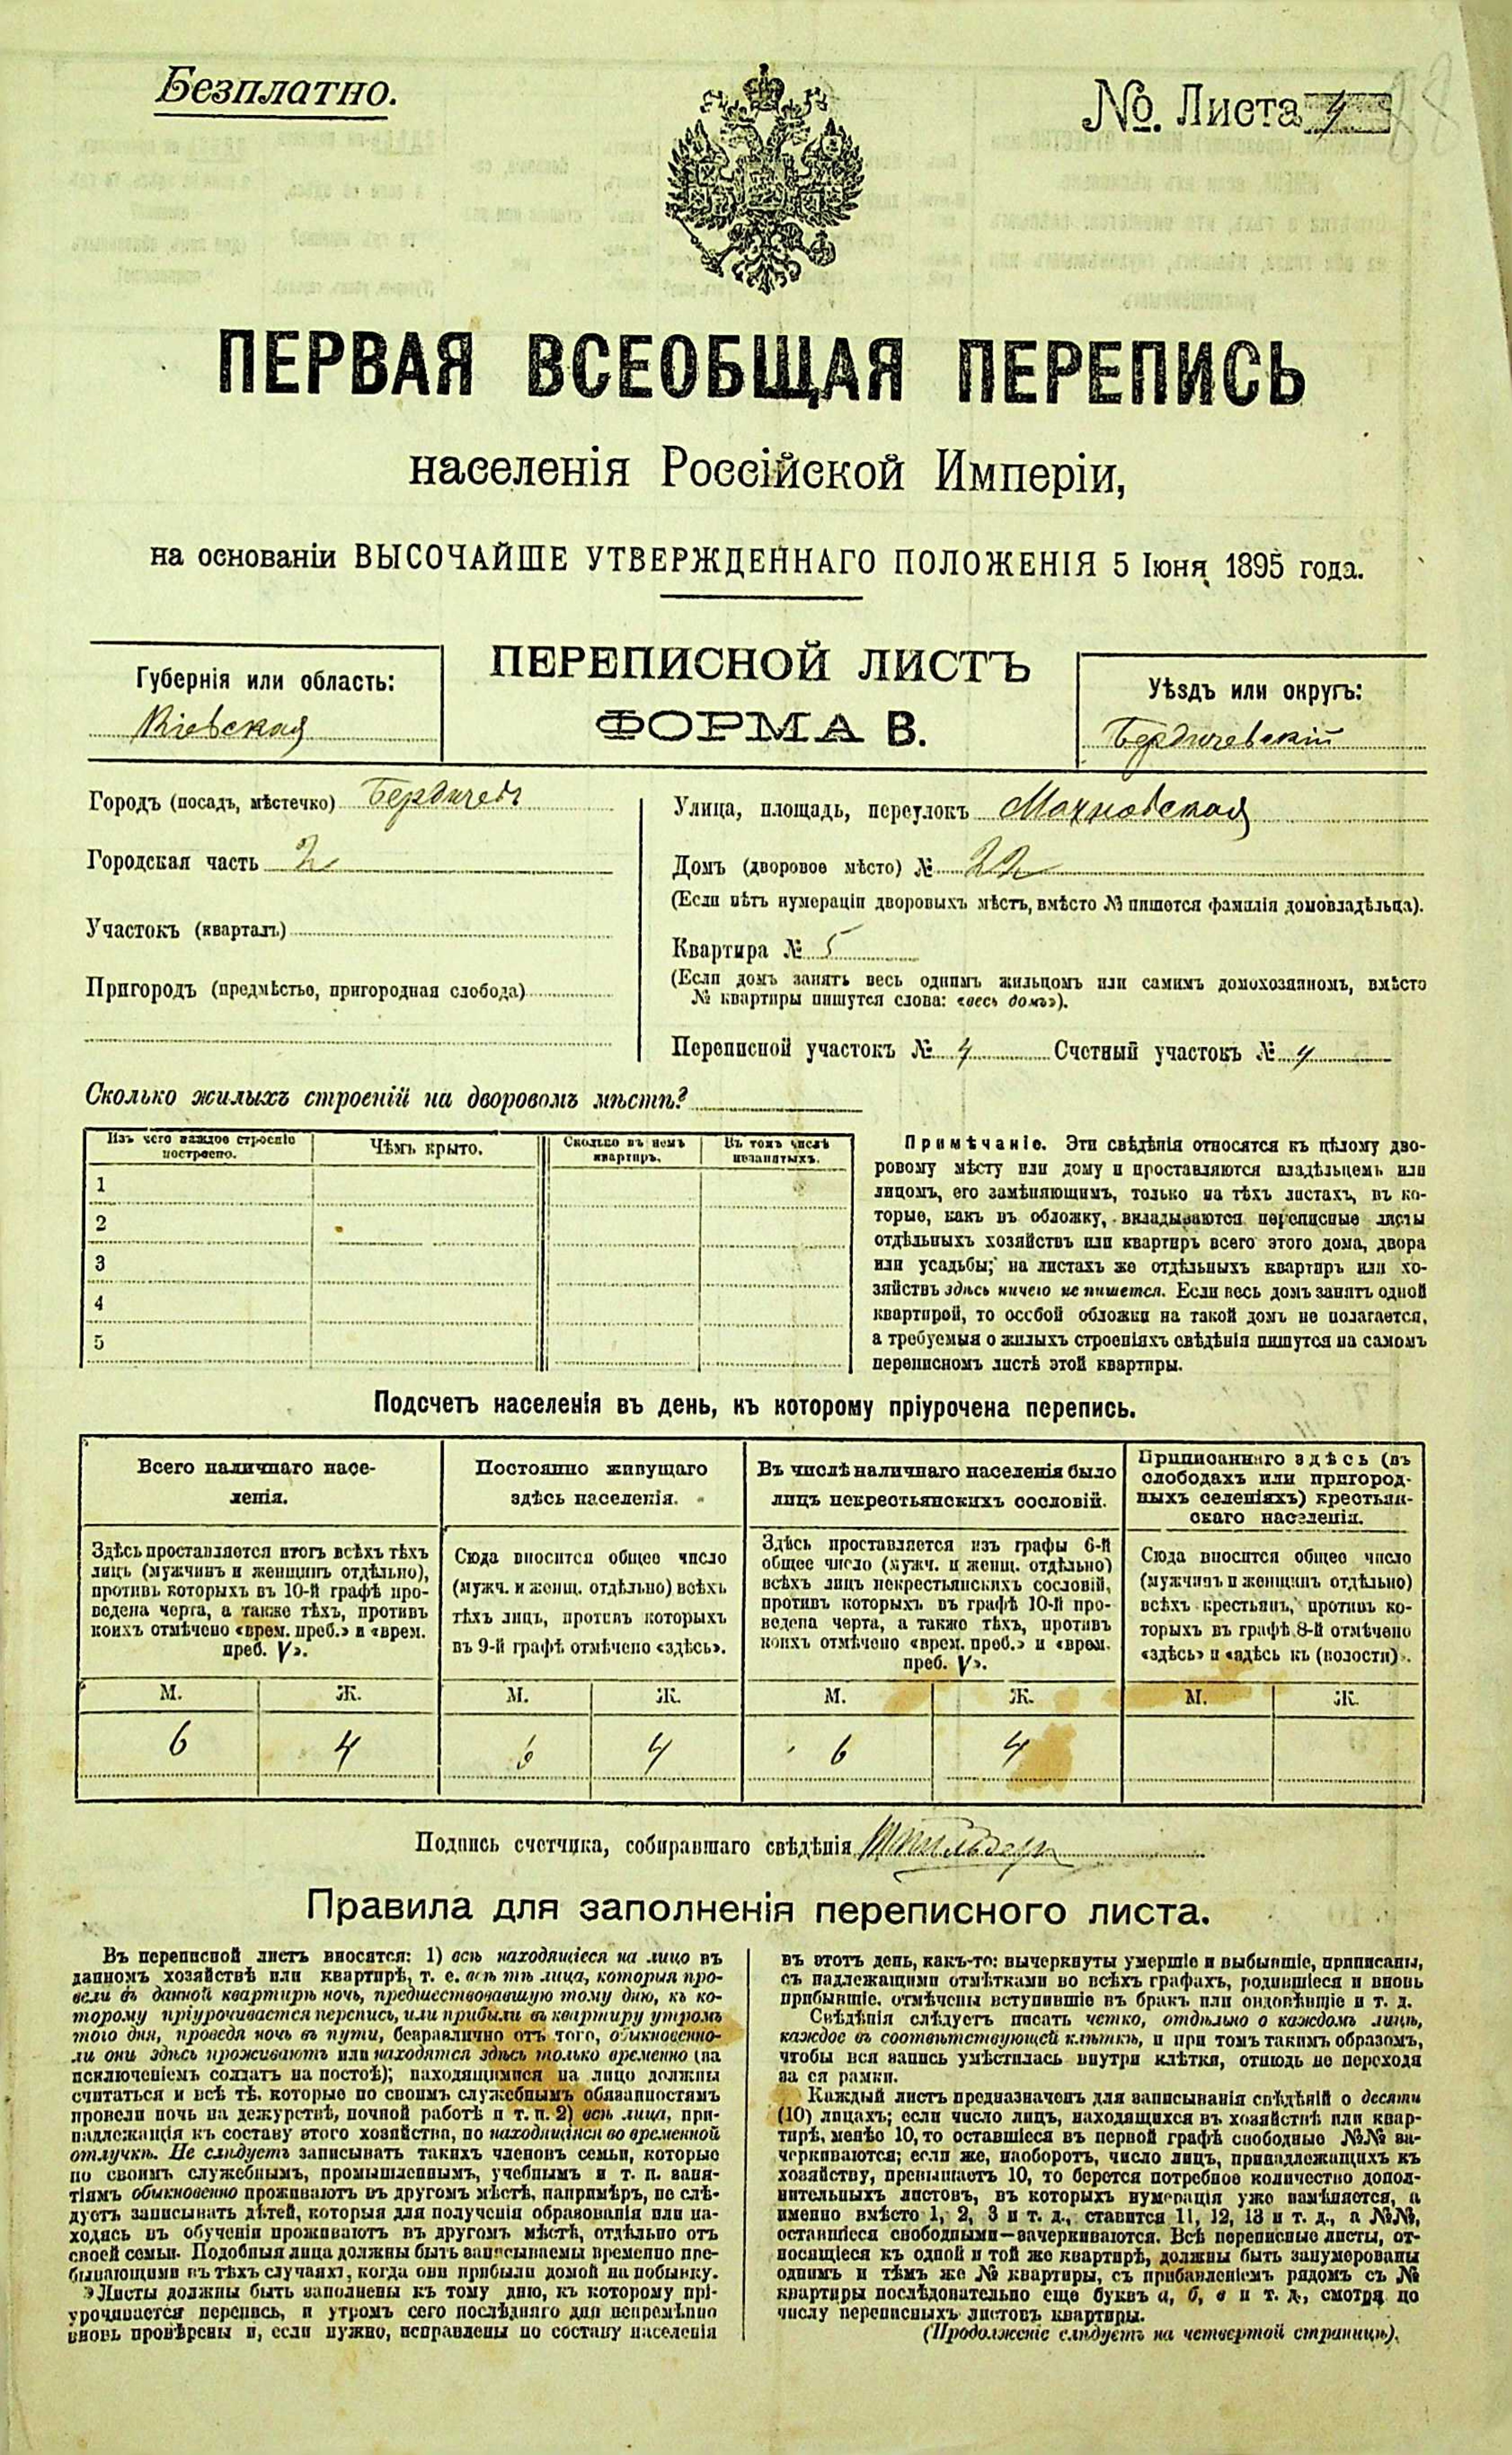 Безплатно.
№. Листа 4
88
ПЕРВАЯ ВСЕОБЩАЯ ПЕРЕПИСЬ
населенія Россійской Имперіи,
на основаніи ВЫСОЧАЙШЕ УТВЕРЖДЕННАГО ПОЛОЖЕНІЯ 5 Іюня 1895 года.
Губернія или область:
Кіевская
ПЕРЕПИСНОЙ ЛИСТЪ
ФОРМА В.
Уѣздъ или округъ:
Бердичевскій
Городъ (посадъ, мѣстечко) Бердичевъ
Городская часть 2
Участокъ (кварталъ)
Пригородъ (предмѣстье, пригородная слобода)
Улица, площадь, переулокъ Махновская
Домъ (дворовое мѣсто) № 22
(Если нѣтъ нумераціи дворовыхъ мѣстъ, вмѣсто № пишется фамилія домовладѣльца).
Квартира № 5
(Если домъ занятъ весь однимъ жильцомъ или самимъ домохозяиномъ, вмѣсто
№ квартиры пишутся слова: «весь домъ»).
Переписной участокъ № 4 Счетный участокъ № 4
Сколько жилыхъ строеній на дворовомъ мѣстѣ?
Изъ чего каждое строеніе
построено.
Чѣмъ крыто.
Сколько въ немъ
квартиръ.
Въ томъ числѣ
незанятыхъ.
1
2
3
4
5
Примѣчаніе. Эти свѣдѣнія относятся къ цѣлому дво-
ровому мѣсту или дому и проставляются владѣльцемъ или
лицомъ, его замѣняющимъ, только на тѣхъ листахъ, въ ко-
торые, какъ въ обложку, вкладываются переписные листы
отдѣльныхъ хозяйствъ или квартиръ всего этого дома, двора
или усадьбы; на листахъ же отдѣльныхъ квартиръ или хо-
зяйствъ здѣсь ничего не пишется. Если весь домъ занятъ одной
квартирой, то особой обложки на такой домъ не полагается,
а требуемыя о жилыхъ строеніяхъ свѣдѣнія пишутся на самомъ
переписномъ листѣ этой квартиры.
Подсчетъ населенія въ день, къ которому пріурочена перепись.
Всего наличнаго насе-
ленія.
Здѣсь проставляется итогъ всѣхъ тѣхъ
лицъ (мужчинъ и женщинъ отдѣльно),
противъ которыхъ въ 10-й графѣ про-
ведена черта, а также тѣхъ, противъ
коихъ отмѣчено «врем. преб.» и «врем.
преб. V».
Постоянно живущаго
здѣсь населенія.
Сюда вносится общее число
(мужч. и женщ. отдѣльно) всѣхъ
тѣхъ лицъ, противъ которыхъ
въ 9-й графѣ отмѣчено «здѣсь».
Въ числѣ наличнаго населенія было
лицъ некрестьянскихъ сословій.
Здѣсь проставляется изъ графы 6-й
общее число (мужч. и женщ. отдѣльно)
всѣхъ лицъ некрестьянскихъ сословій,
противъ которыхъ въ графѣ 10-й про-
ведена черта, а также тѣхъ, противъ
коихъ отмѣчено «врем. преб.» и «врем.
преб. V».
Приписаннаго здѣсь (въ
слободахъ или пригород-
ныхъ селеніяхъ) крестьян-
скаго населенія.
Сюда вносится общее число
(мужчинъ и женщинъ отдѣльно)
всѣхъ крестьянъ, противъ ко-
торыхъ въ графѣ 8-й отмѣчено
«здѣсь» и «здѣсь къ (волости)».
М. Ж. М. Ж. М. Ж. М. Ж.
6 4 6 4 6 4
Подпись счетчика, собиравшаго свѣдѣнія
Правила для заполненія переписного листа.
Въ переписной листъ вносятся: 1) всѣ находящіеся на лицо въ
данномъ хозяйствѣ или квартирѣ, т. е. всѣ тѣ лица, которыя про-
вели въ данной квартирѣ ночь, предшествовавшую тому дню, къ ко-
торому пріурочивается перепись, или прибыли въ квартиру утромъ
того дня, проведя ночь въ пути, безразлично отъ того, обыкновенно-
ли они здѣсь проживаютъ или находятся здѣсь только временно (за
исключеніемъ солдатъ на постоѣ); находящимися на лицо должны
считаться и всѣ тѣ, которые по своимъ служебнымъ обязанностямъ
провели ночь на дежурствѣ, ночной работѣ и т. п. 2) всѣ лица, при-
надлежащія къ составу этого хозяйства, но находящіяся во временной
отлучкѣ. Не слѣдуетъ записывать такихъ членовъ семьи, которые
по своимъ служебнымъ, промышленнымъ, учебнымъ и т. п. заня-
тіямъ обыкновенно проживаютъ въ другомъ мѣстѣ, напримѣръ, не слѣ-
дуетъ записывать дѣтей, которыя для полученія образованія или на-
ходясь въ обученіи проживаютъ въ другомъ мѣстѣ, отдѣльно отъ
своей семьи. Подобныя лица должны быть записываемы временно пре-
бывающими въ тѣхъ случаяхъ, когда они прибыли домой на побывку.
Листы должны быть заполнены къ тому дню, къ которому прі-
урочивается перепись, и утромъ сего послѣдняго дня непремѣнно
вновь провѣрены и, если нужно, исправлены по составу населенія
въ этотъ день, какъ-то: вычеркнуты умершіе и выбывшіе, приписаны,
съ надлежащими отмѣтками во всѣхъ графахъ, родившіеся и вновь
прибывшіе, отмѣчены вступившіе въ бракъ или овдовѣвшіе и т. д.
Свѣдѣнія слѣдуетъ писать четко, отдѣльно о каждомъ лицѣ,
каждое въ соотвѣтствующей клѣткѣ, и при томъ такимъ образомъ,
чтобы вся запись умѣстилась внутри клѣтки, отнюдь не переходя
за ея рамки.
Каждый листъ предназначенъ для записыванія свѣдѣній о десяти
(10) лицахъ; если число лицъ, находящихся въ хозяйствѣ или квар-
тирѣ, менѣе 10, то оставшіеся въ первой графѣ свободные №№ за-
черкиваются; если же, наоборотъ, число лицъ, принадлежащихъ къ
хозяйству, превышаетъ 10, то берется потребное количество допол-
нительныхъ листовъ, въ которыхъ нумерація уже измѣняется, а
именно вмѣсто 1, 2, 3 и т. д., ставится 11, 12, 13 и т. д., а №№,
оставшіеся свободными—зачеркиваются. Всѣ переписные листы, от-
носящіеся къ одной и той же квартирѣ, должны быть занумерованы
однимъ и тѣмъ же № квартиры, съ прибавленіемъ рядомъ съ №
квартиры послѣдовательно еще буквъ а, б, в и т. д., смотря по
числу переписныхъ листовъ квартиры.
(Продолженіе слѣдуетъ на четвертой страницѣ).